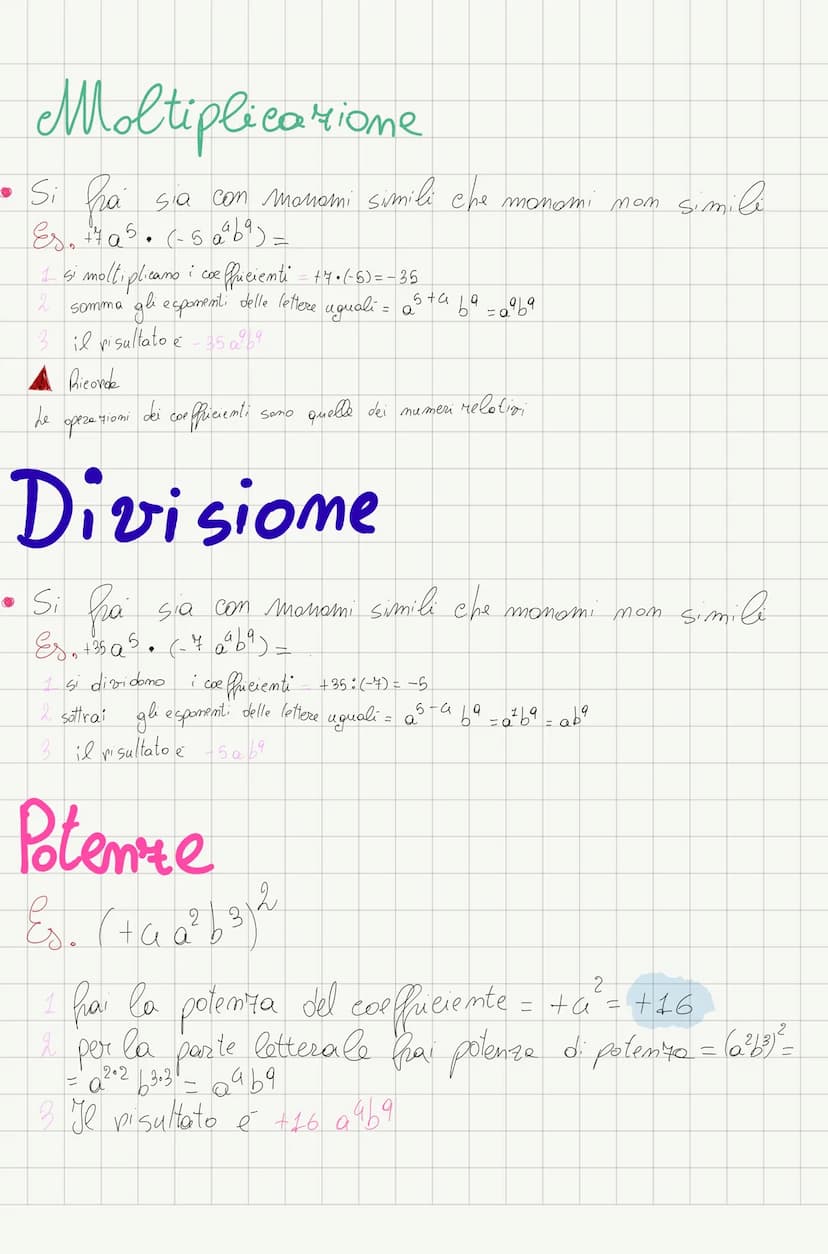 Moltiplicazione
• Si fa sia con monomi simili che monomi non simili
Es. +7a⁵ • (-5 a⁴b⁹) =
1 si moltiplicano i coefficienti = +7•(-5) = -35
2 somma gli esponenti delle lettere uguali = a⁵⁺⁴ b⁹ = a⁹b⁹
3 il risultato è -35a⁹b⁹
Ricorda
Le operazioni dei coefficienti sono quelle dei numeri relativi
Divisione
• Si fa sia con monomi simili che monomi non simili
Es. +35a⁵ • (-7 a⁴b⁹) =
1 si dividono i coefficienti = +35:(-7) = -5
2 sottrai gli esponenti delle lettere uguali = a⁵⁻⁴ b⁹ = a¹b⁹ = ab⁹
3 il risultato è +5ab⁹
Potenze
Es. (+4 a²b³)²
1 fai la potenza del coefficiente = +4² = +16
2 per la parte letterale fai potenza di potenza = (a²b³)² =
= a²•² b³•³ = a⁴b⁹
3 Il risultato è +16 a⁴b⁹